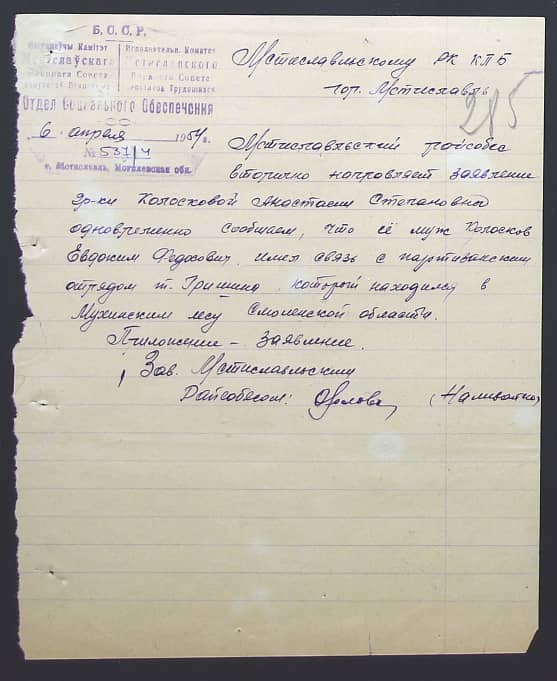 Б. С. С. Р.
Выканаўчы Камітэт
Мсціслаўскага
Раённага Совета
Исполнительн. Комитет
Мстиславского
Районного Совета
депутатов Трудящихся
Отдел Социального Обеспечения
6 апреля 1954г.
№ 537/4
г. Мстиславль, Могилевская обл.
Мстиславльскому РК КПБ
гор. Мстиславль
215
Мстиславльский райсобес
вторично направляет заявление
гр-ки Колосковой Анастасии Степановны
одновременно сообщаем, что её муж Колосков
Евдоким Федосович, имел связь с партизанским
отрядом т. Гришина, который находился в
Мухинским лесу Смоленской области.
Приложение – заявление.
Зав. Мстиславльским
Райсобесом: (Наливайко)